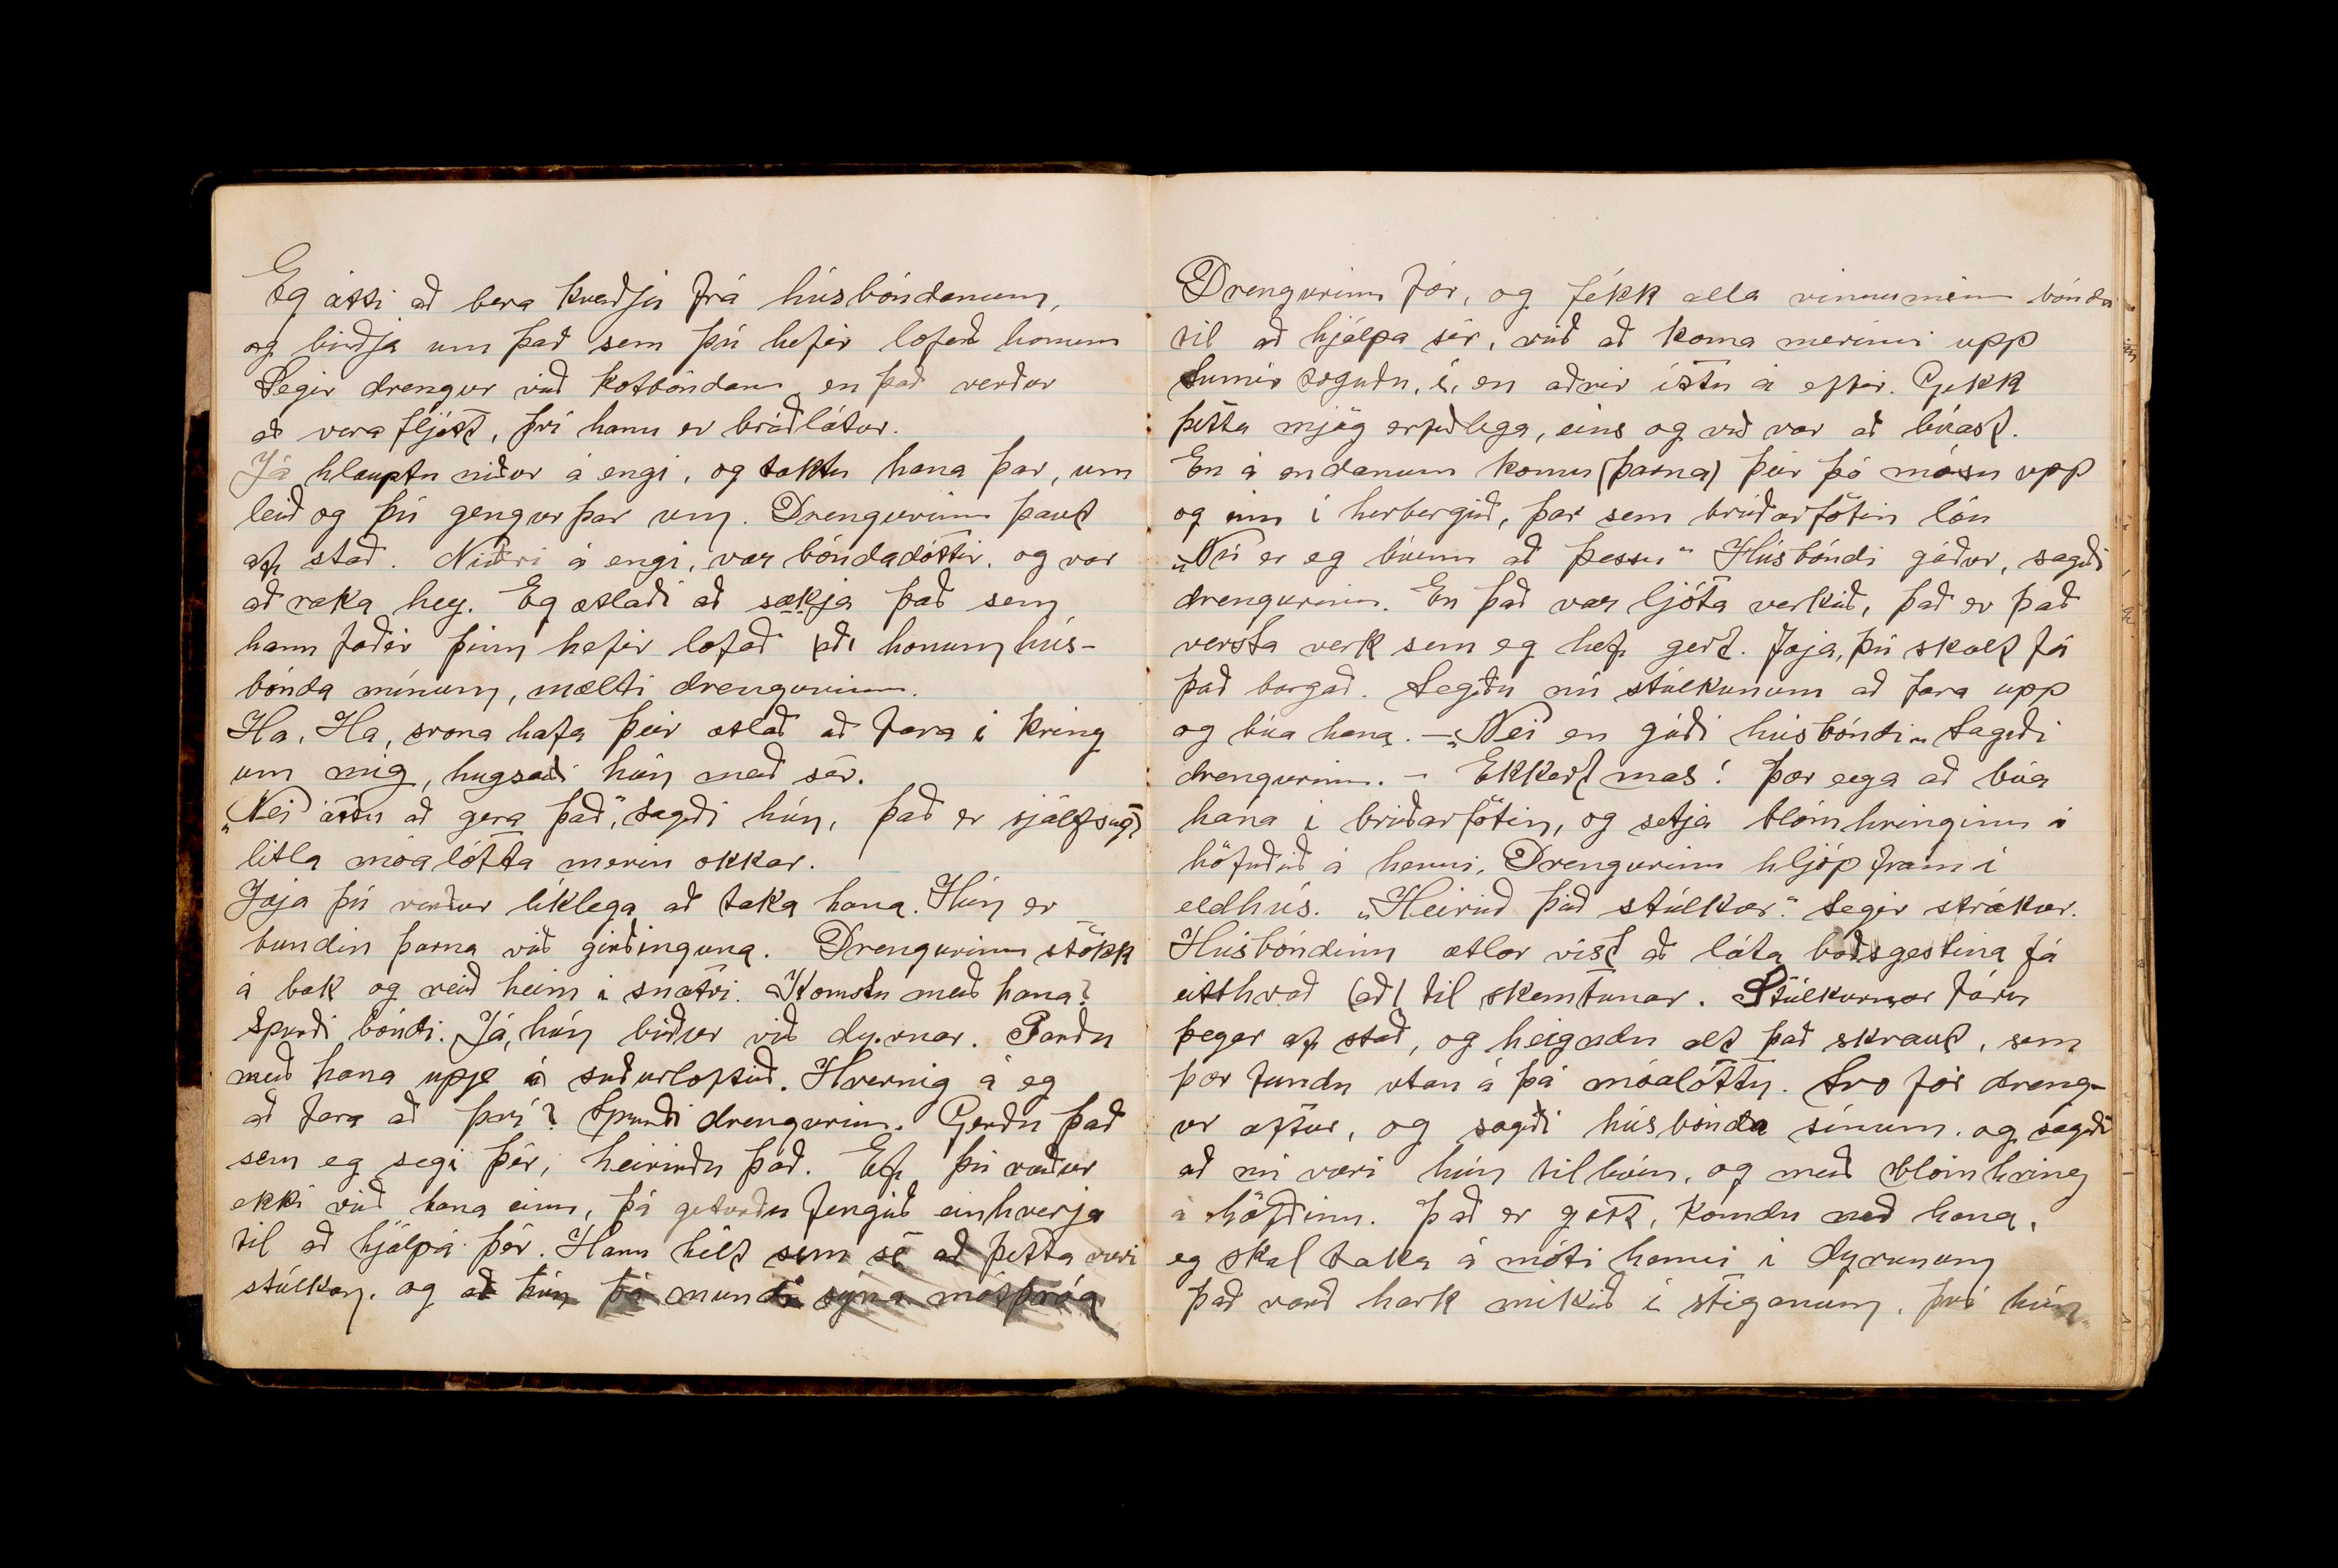 Eg átti að bera kveðju frá húsbóndanum,
og biðja um það sem þú hefir lofað honum
Segir drengur við kotbóndann, en það verður
að vera fljótt, því hann er bráðlátur.
Já hlauptu niður á engi, og taktu hana þar, um
leið og þú gengur þar um. Drengurinn þaut
af stað. Niðri á engi, var bóndadóttir, og var
að raka hey. Eg ætlaði að sækja það sem
hann faðir þinn hefir lofað (að) honum hús-
bónda mínum, mælti drengurinn.
Ha, Ha, svona hafa þeir ætlað að fara í kring
um mig, hugsaði hún með sér.
„Nei áttu að gera það", sagði hún, það er sjálfsagt
litla móalótta merin okkar.
Jæja þú verður líklega að taka hana. Hún er
bundin þarna við girðinguna. Drengurinn stökk
á bak og reið heim í snatri. Komstu með hana?
Spurði bóndi. Já, hún bíður við dyrnar. Farðu
með hana upp á suðurloftið. Hvernig á eg
að fara að því? Spurði drengurinn. Gerðu það
sem eg segi þér, heirirðu það. Ef þú ræður
ekki við hana einn, þá geturðu fengið einhverja
til að hjálpa þér. Hann hélt sem sé að þetta væri
stúlkan. og að hún þá mundi sýna mótþróa
Drengurinn fór, og fékk alla vinnumenn bónda
til að hjálpa sér, við að koma merinni upp
Sumir toguðu, í, en aðrir íttu á eftir. Gekk
þetta mjög erfiðlega, eins og við var að búast.
En á endanum komu (þarna) þeir þó mósu upp
og inn í herbergið, þar sem brúðarfötin lóu
„Nú er eg búinn að þessu" Húsbóndi góður, sagði
drengurinn. En það var ljóta verkið, það er það
versta verk sem eg hef gert. Jæja, þú skalt fá
það borgað. Segðu nú stúlkunum að fara upp
og búa hana. – „Nei en góði húsbóndi" Sagði
drengurinn. – Ekkert mas! Þær eega að búa
hana í brúðarfötin, og setja blómhringinn á
höfuðið á henni. Drengurinn hljóp fram í
eldhús. „Heirið þið stúlkur." Segir strákur.
Húsbóndinn ætlar víst að láta boðsgestina fá
eitthvað (að) til skemtunar. Stúlkurnar fóru
þegar af stað, og heigðu alt það skraut, sem
þær fundu utan á þá móalóttu. Svo fór dreng-
ur aftur, og sagði húsbónda sínum. og sagði
að nú væri hún tilbúin, og með blómhring
á höfðinu. Það er gott, komdu með hana,
eg skal taka á móti henni í dyrunum
Það varð hark mikið í stiganum, því hún